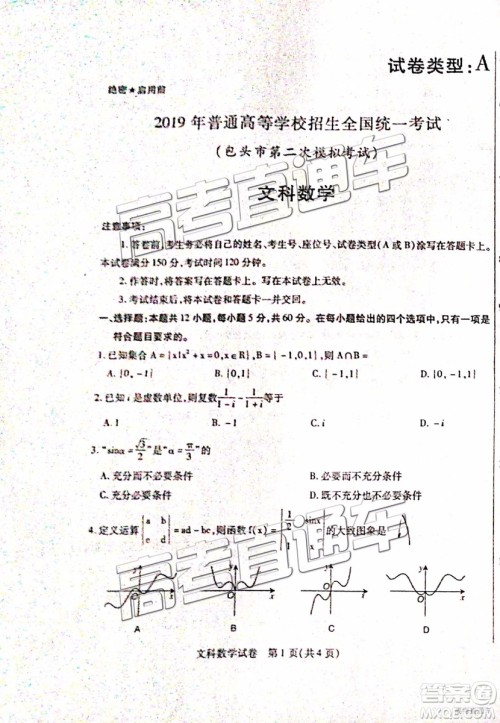 试卷类型:A
绝密★启用前
2019年普通高等学校招生全国统一考试
(包头市第二次模拟考试)
文科数学
注意事项:
1. 答卷前,考生务必将自己的姓名、考生号、座位号、试卷类型(A或B)涂写在答题卡上。
本试卷满分150分,考试时间120分钟。
2. 作答时,将答案写在答题卡上。写在本试卷上无效。
3. 考试结束后,将本试卷和答题卡一并交回。
一、选择题:本题共12小题,每小题5分,共60分。在每小题给出的四个选项中,只有一项是
符合题目要求的。
1. 已知集合A={x|x²+x=0,x∈R},则A∩B=
A. {0,-1} B. {0,1} C. {-1,1} D. {1}
2. 已知i是虚数单位,则复数1/(1-i)-1/(1+i)等于
A. i B. -i C. 1 D. -1
3. “sinα=√3/2”是“α=π/3”的
A. 充分而不必要条件 B. 必要而不充分条件
C. 充分必要条件 D. 既不充分也不必要条件
4. 定义运算|a b|=ad-bc,则函数f(x)=的大致图象是
c d
A. B. C. D.
文科数学试卷 第1页(共4页)
高考直通车
高考直通车
高考直通车